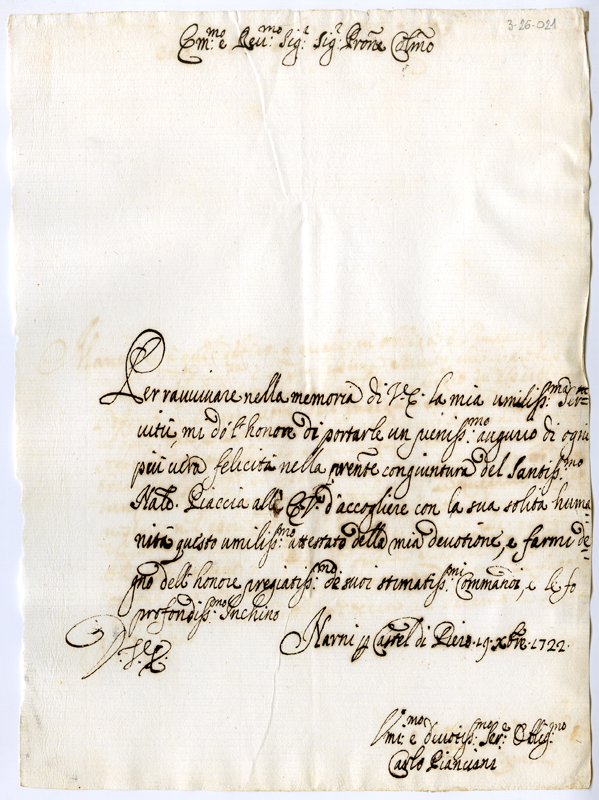 3-26-021
Em.mo e Rev.mo Sig.r Sig.r Pron̄e Col.mo
Per ravvivare nella memoria di V. E. la mia umiliss.ma Ser=
vitù, mi dò l'honore di portarle un pieniss.mo augurio di ogni
più vera felicità nella preñte congiuntura del Santiss.mo
Nat.e Piaccia all' E. V. d'accogliere con la sua solita huma
nità questo umiliss.mo attestato della mia devotione, e farmi de=
gno dell'honore pregiatiss.mo de suoi stimatiss.mi Commandi, e le fo
profondiss.mo Inchino
Narni Castel di Piero 19 Xbre 1722.
V. E.
Um.mo e devotiss.mo Ser.e Oblig.mo
Carlo Pianciani